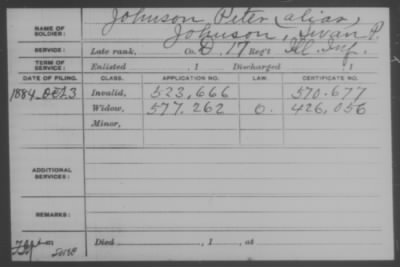 NAME OF SOLDIER: Johnson, Peter (alias)
Johnson, Swan P.
SERVICE: Late rank, Co. D. 17 Reg't Ill. Inf.
TERM OF SERVICE: Enlisted , 1 Discharged , 1
DATE OF FILING. CLASS. APPLICATION NO. LAW. CERTIFICATE NO.
1884 OCT 3 Invalid, 523,666 570.677
Widow, 577,262 O. 426,056
Minor,
ADDITIONAL SERVICES:
REMARKS:
Died , 1 , at